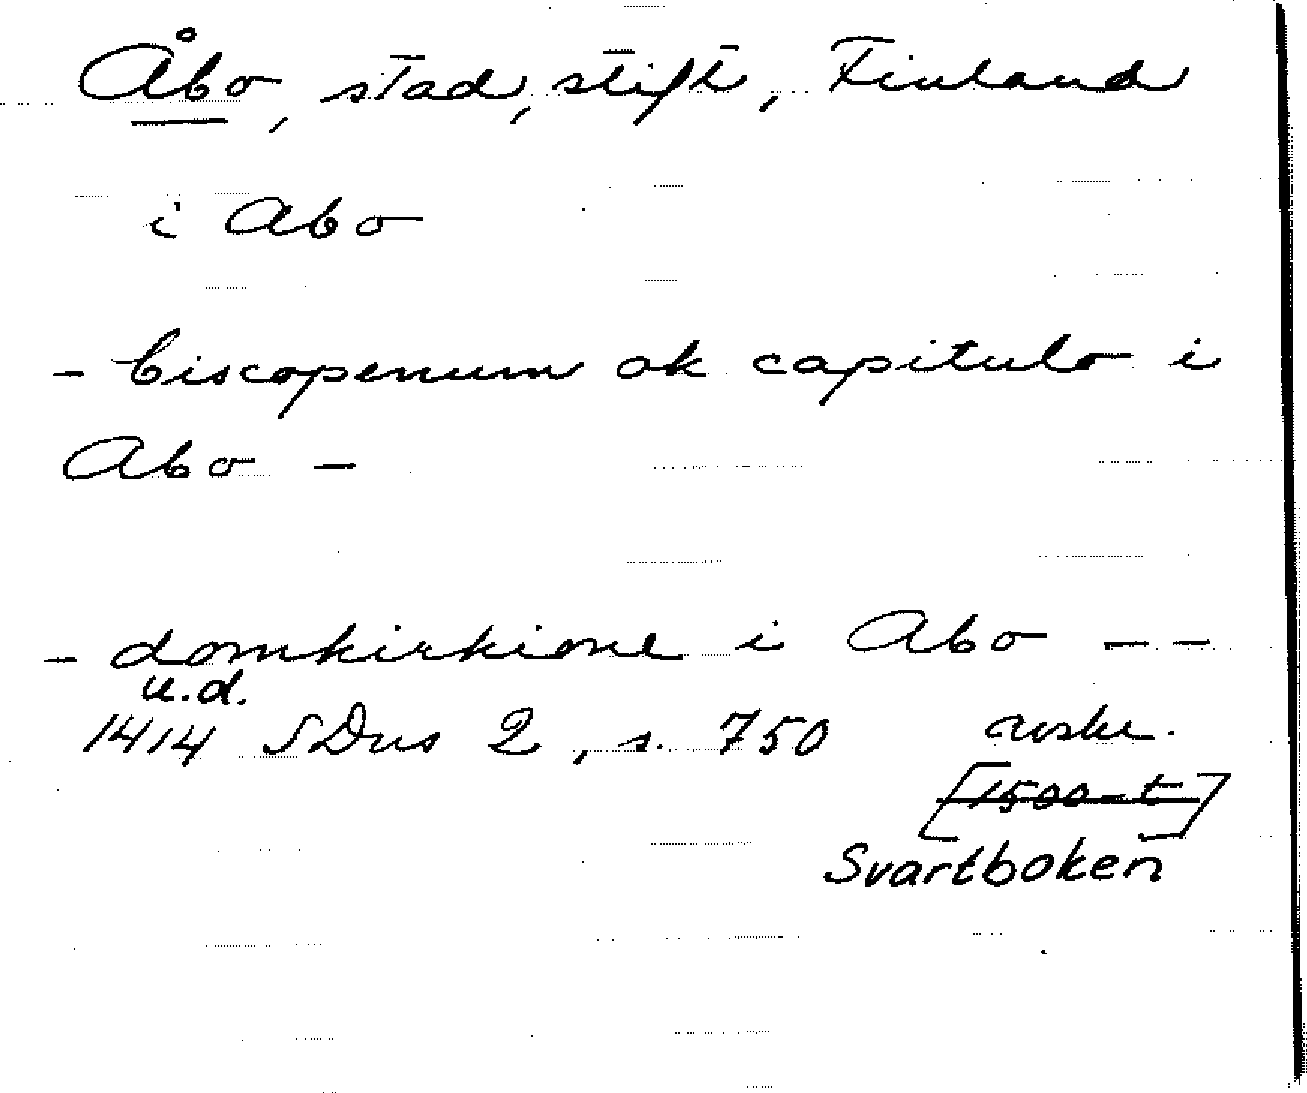 Åbo, stad, stift, Finland
i Abo
- biscopenum ok capitulo i
Abo -
- domkirkione i Abo - -
u.d.
1414 SDns 2, s. 750 avskr.
[1500-t]
Svartboken